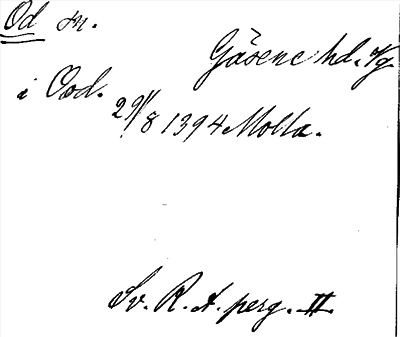 Od sn.
Gäsene hd. Vg
i Ood.
29/8 1394 Molla.
Sv. R. A. perg. II.